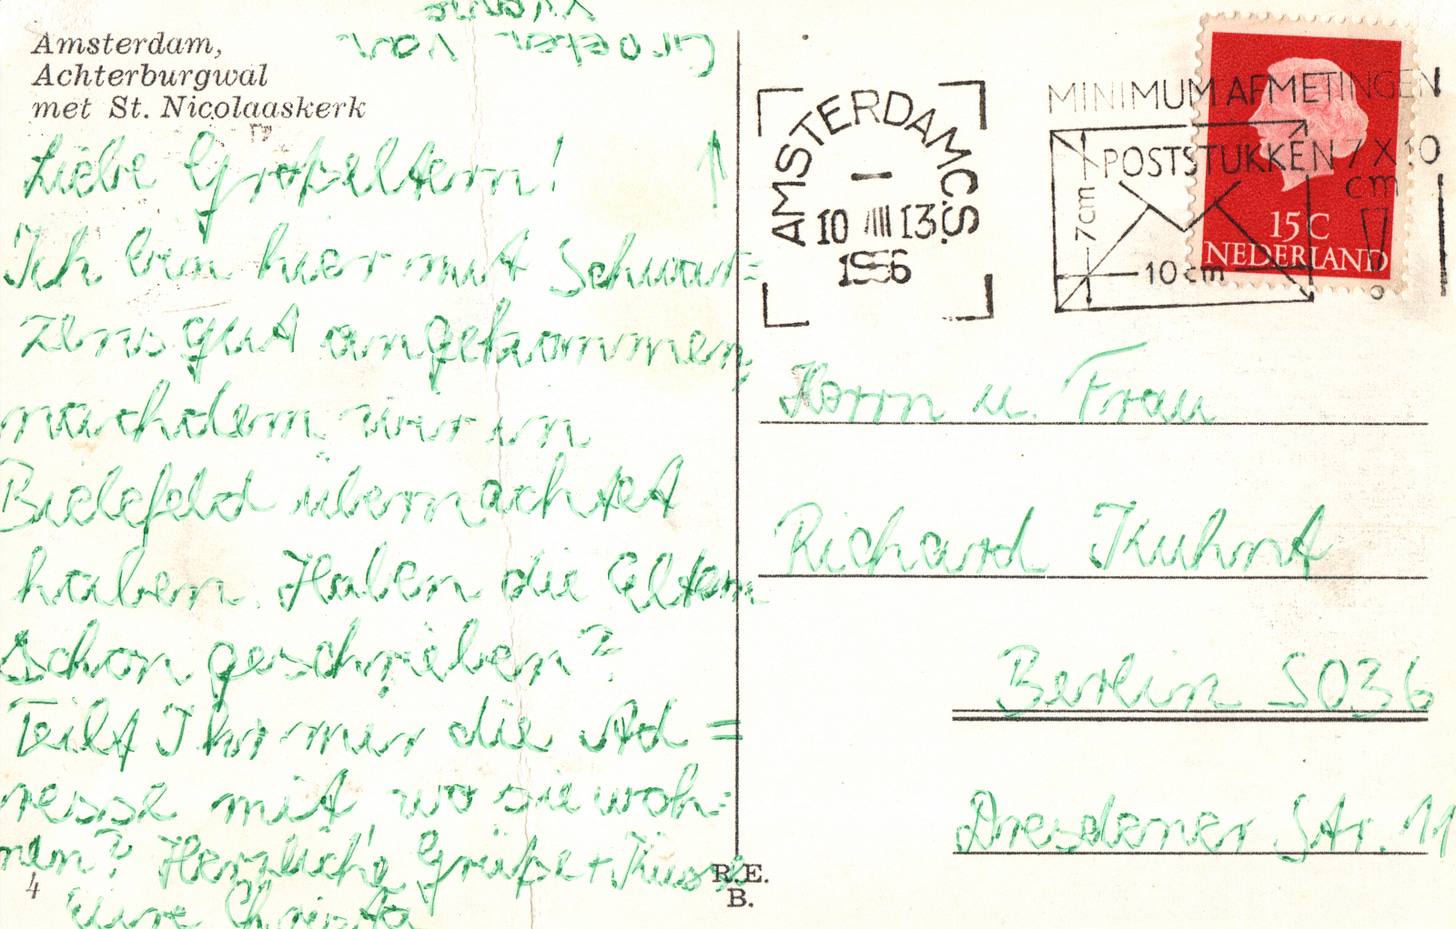 Amsterdam,
Achterburgwal
met St. Nicolaaskerk
Groeten van
Liebe Großeltern!
Ich bin hier mit Schwar=
zens gut angekommen,
nachdem wir in
Bielefeld übernachtet
haben. Haben die Eltern
schon geschrieben?
Teilt Ihr mir die Ad=
resse mit, wo sie woh=
nen? Herzliche Grüße + Küsse
Eure Christa
4
R.E.
B.
AMSTERDAM C.S.
10 VIII 13
MINIMUM AFMETINGEN
POSTSTUKKEN 7 X 10
cm
7cm
10 cm
15 C
NEDERLAND
Herrn u. Frau
Richard Kuhnt
Berlin SO36
Dresdener Str. 11